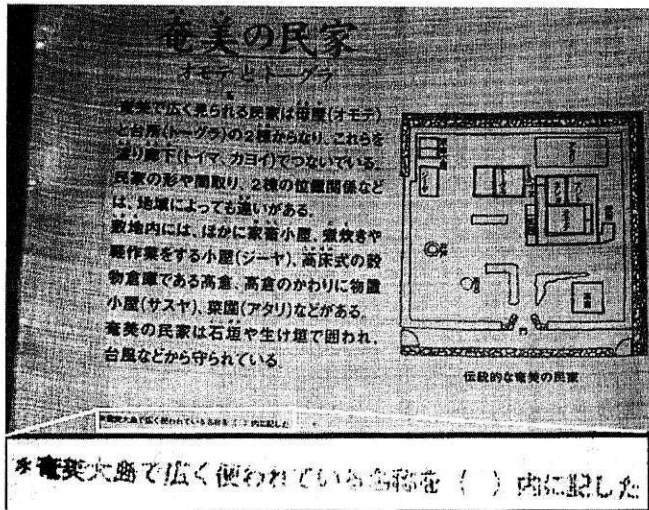 奄美の民家
オモテとトーグラ
奄美で広く見られる民家は母屋(オモテ)
と台所(トーグラ)の2棟からなり、これらを
渡り廊下(トイマ、カヨイ)でつないでいる。
民家の形や間取り、2棟の位置関係など
は、地域によっても違いがある。
敷地内には、ほかに家畜小屋、煮炊きや
軽作業をする小屋(ジーヤ)、高床式の穀
物倉庫である高倉、高倉のかわりに物置
小屋(サスヤ)、菜園(アタリ)などがある。
奄美の民家は石垣や生け垣で囲われ、
台風などから守られている。
伝統的な奄美の民家
*奄美大島で広く使われている名称を ( ) 内に記した
*奄美大島で広く使われている名称を ( ) 内に記した